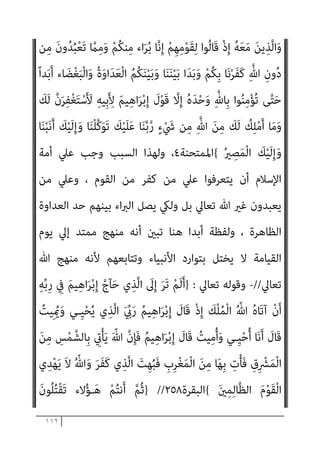 وَالَّذِينَ مَعَهُ إِذْ قَالُوا لِقَوْمِهِمْ إِنَّا بُرَآءُ مِنكُمْ وَمِمَّا تَعْبُدُونَ مِن
دُونِ اللَّهِ كَفَرْنَا بِكُمْ وَبَدَا بَيْنَنَا وَبَيْنَكُمُ الْعَدَاوَةُ وَالْبَغْضَاء أَبَداً
حَتَّى تُؤْمِنُوا بِاللَّهِ وَحْدَهُ إِلَّا قَوْلَ إِبْرَاهِيمَ لِأَبِيهِ لَأَسْتَغْفِرَنَّ لَكَ
وَمَا أَمْلِكُ لَكَ مِنَ اللَّهِ مِن شَيْءٍ رَّبَّنَا عَلَيْكَ تَوَكَّلْنَا وَإِلَيْكَ أَنَبْنَا
وَإِلَيْكَ الْمَصِيرُ }الممتحنة٤، ولهذا السبب وجب علي أمة
الإسلام أن يتعرفوا علي من كفر من القوم ، وعلي من
يعبدون غير الله تعالي بل ولكي يصل البراء بينهم حد العداوة
الظاهرة ، ولفظة أبدا هنا تبين أنه منهج ممتد إلي يوم
القيامة لا يختل بتوارد الأنبياء وتتابعهم لأنه منهج الله
تعالي//- وقوله تعالي : {أَلَمْ تَرَ إِلَى الَّذِي حَآجَّ إِبْرَاهِيمَ فِي رَبِّهِ
أَنْ آتَاهُ اللّهُ الْمُلْكَ إِذْ قَالَ إِبْرَاهِيمُ رَبِّيَ الَّذِي يُحْيِـي وَيُمِيتُ
قَالَ أَنَا أُحْيِـي وَأُمِيتُ قَالَ إِبْرَاهِيمُ فَإِنَّ اللّهَ يَأْتِي بِالشَّمْسِ مِنَ
الْمَشْرِقِ فَأْتِ بِهَا مِنَ الْمَغْرِبِ فَبُهِتَ الَّذِي كَفَرَ وَاللّهُ لاَ يَهْدِي
الْقَوْمَ الظَّالِمِينَ }البقرة٢٥٨// {ثُمَّ أَنتُمْ هَـؤُلاء تَقْتُلُونَ
١١٢